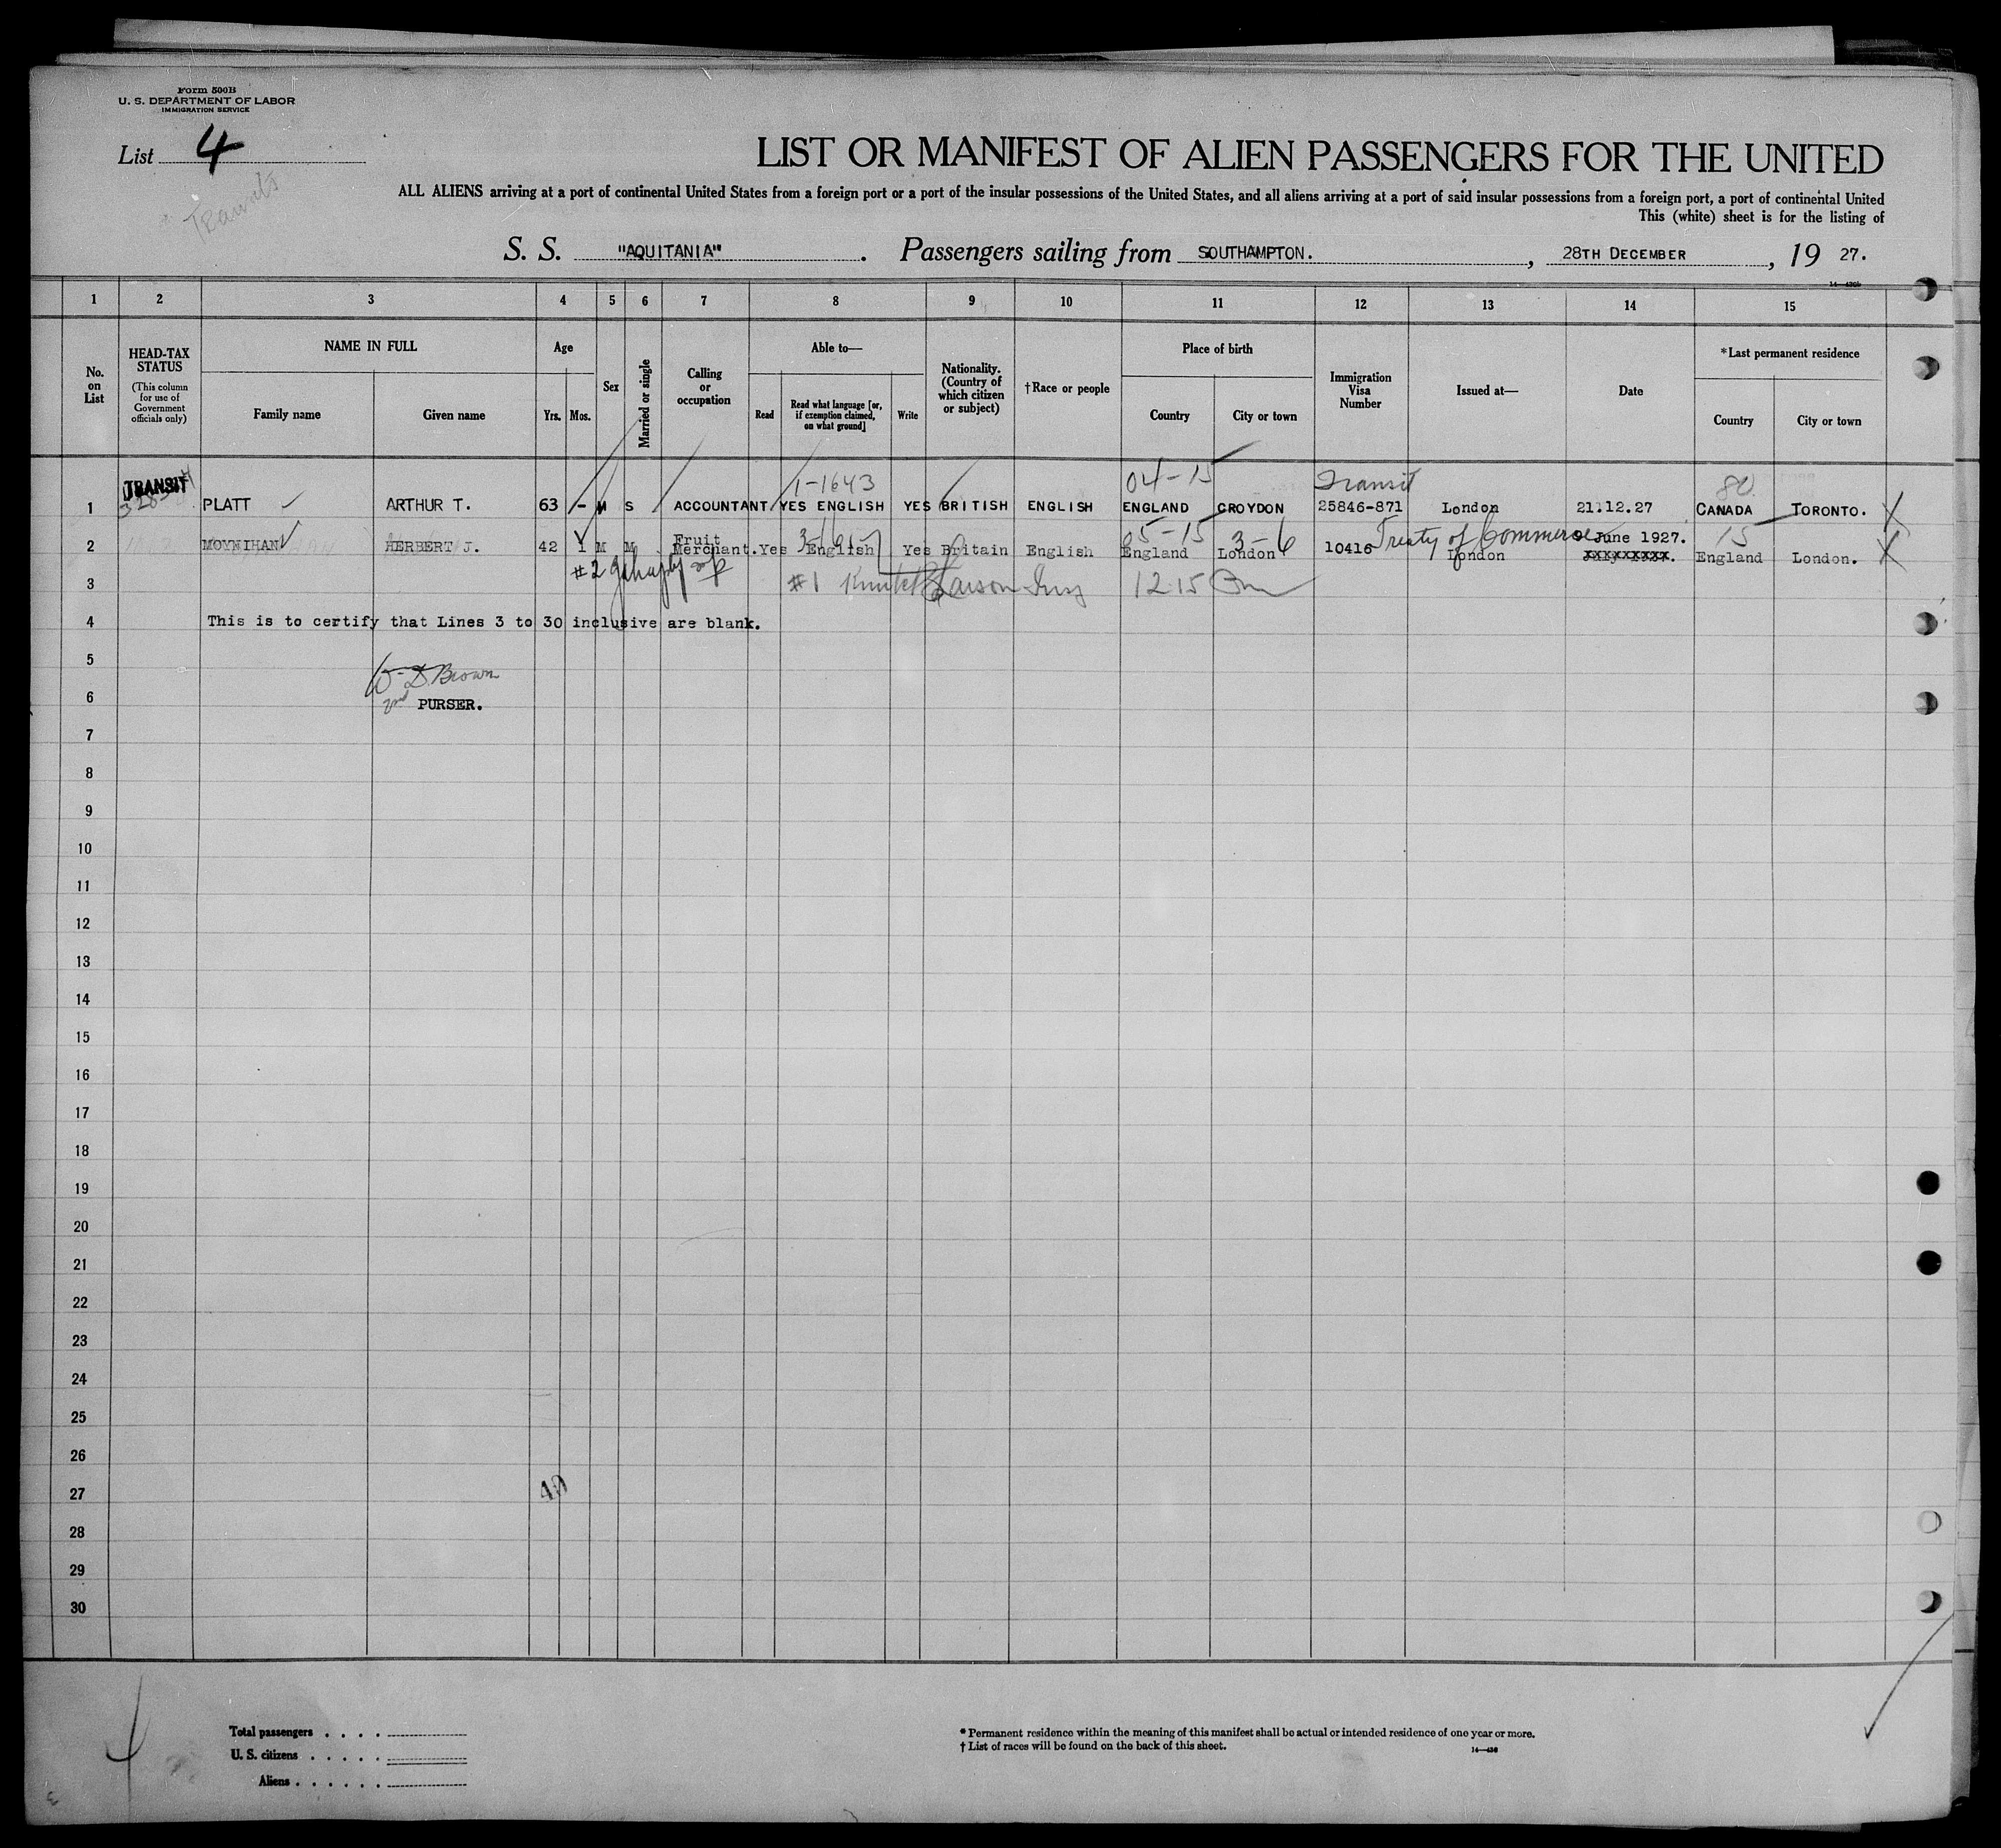 Form 500B
U. S. DEPARTMENT OF LABOR
IMMIGRATION SERVICE
List 4
LIST OR MANIFEST OF ALIEN PASSENGERS FOR THE UNITED
ALL ALIENS arriving at a port of continental United States from a foreign port or a port of the insular possessions of the United States, and all aliens arriving at a port of said insular possessions from a foreign port, a port of continental United
This (white) sheet is for the listing of
S. S. "AQUITANIA". Passengers sailing from SOUTHAMPTON. , 28TH DECEMBER , 19 27.
1 2 3 4 5 6 7 8 9 10 11 12 13 14 15
No. on List
HEAD-TAX STATUS (This column for use of Government officials only)
NAME IN FULL
Family name Given name
Age
Yrs. Mos.
Sex
Married or single
Calling or occupation
Able to—
Read Read what language [or, if exemption claimed, on what ground] Write
Nationality. (Country of which citizen or subject)
†Race or people
Place of birth
Country City or town
Immigration Visa Number
Issued at—
Date
*Last permanent residence
Country City or town
TRANSIT 1-1643 04-15 Transit 80
1 PLATT ARTHUR T. 63 - M S ACCOUNTANT YES ENGLISH YES BRITISH ENGLISH ENGLAND CROYDON 25846-871 London 21.12.27 CANADA TORONTO.
05-15 3-6 Treaty of Commerce 15
2 MOYNIHAN HERBERT J. 42 1 M M Fruit Merchant. Yes English Yes Britain English England London 10416 London 9 June 1927. xxxxxxxxx. England London.
3 #2 #1 Larson 12.15
4 This is to certify that Lines 3 to 30 inclusive are blank.
5 W D Brown
6 2nd PURSER.
7
8
9
10
11
12
13
14
15
16
17
18
19
20
21
22
23
24
25
26
27
28
29
30
4
Total passengers . . . .
U. S. citizens . . . . .
Aliens . . . . . .
* Permanent residence within the meaning of this manifest shall be actual or intended residence of one year or more.
† List of races will be found on the back of this sheet.
14—430